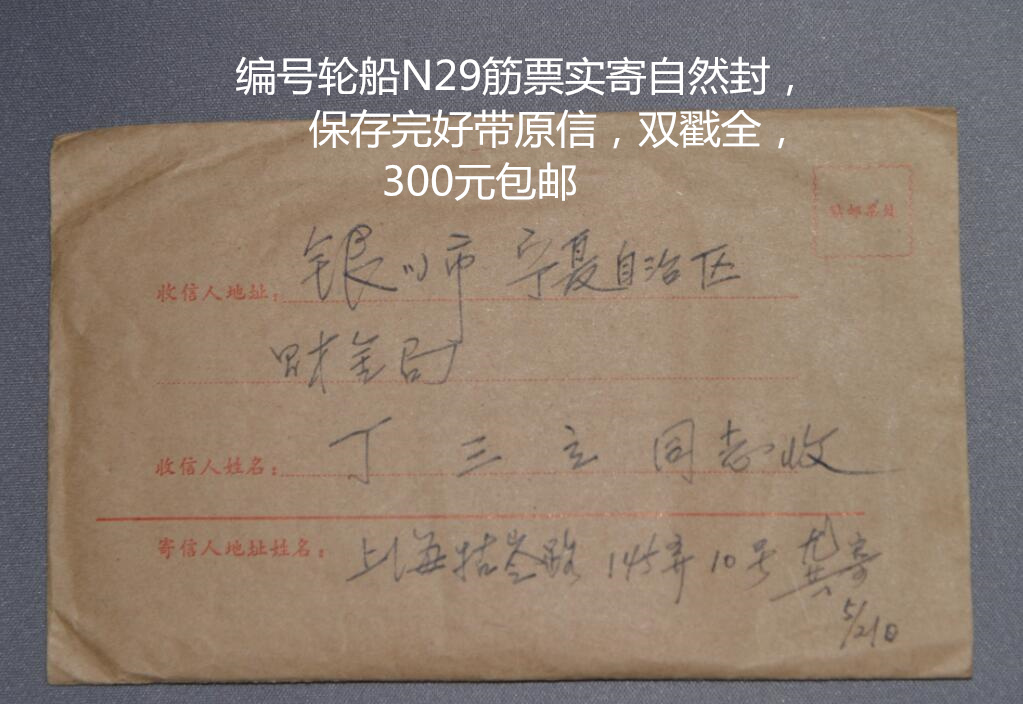 编号轮船N29筋票实寄自然封，
保存完好带原信，双戳全，
300元包邮
贴邮票处
收信人地址：银川市 宁夏自治区
财金局
收信人姓名：丁三立 同志收
寄信人地址姓名：上海牯岭路145弄10号 龚寄
5/21日